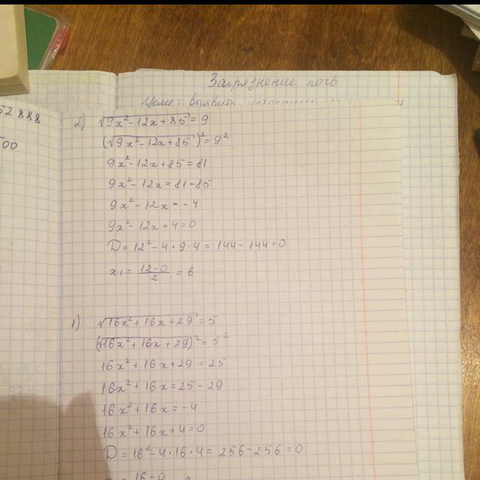 52 888
500
Загрязнение почв
Цель: выявить
2) √9x² - 12x + 85 = 9
(√9x² - 12x + 85)² = 9²
9x² - 12x + 85 = 81
9x² - 12x = 81 - 85
9x² - 12x = -4
9x² - 12x + 4 = 0
D = 12² - 4 · 9 · 4 = 144 - 144 = 0
x₁ = (12 - 0)/2 = 6
1) √16x² + 16x + 29 = 5
(√16x² + 16x + 29)² = 5²
16x² + 16x + 29 = 25
16x² + 16x = 25 - 29
16x² + 16x = -4
16x² + 16x + 4 = 0
D = 16² - 4 · 16 · 4 = 256 - 256 = 0
16 - 0